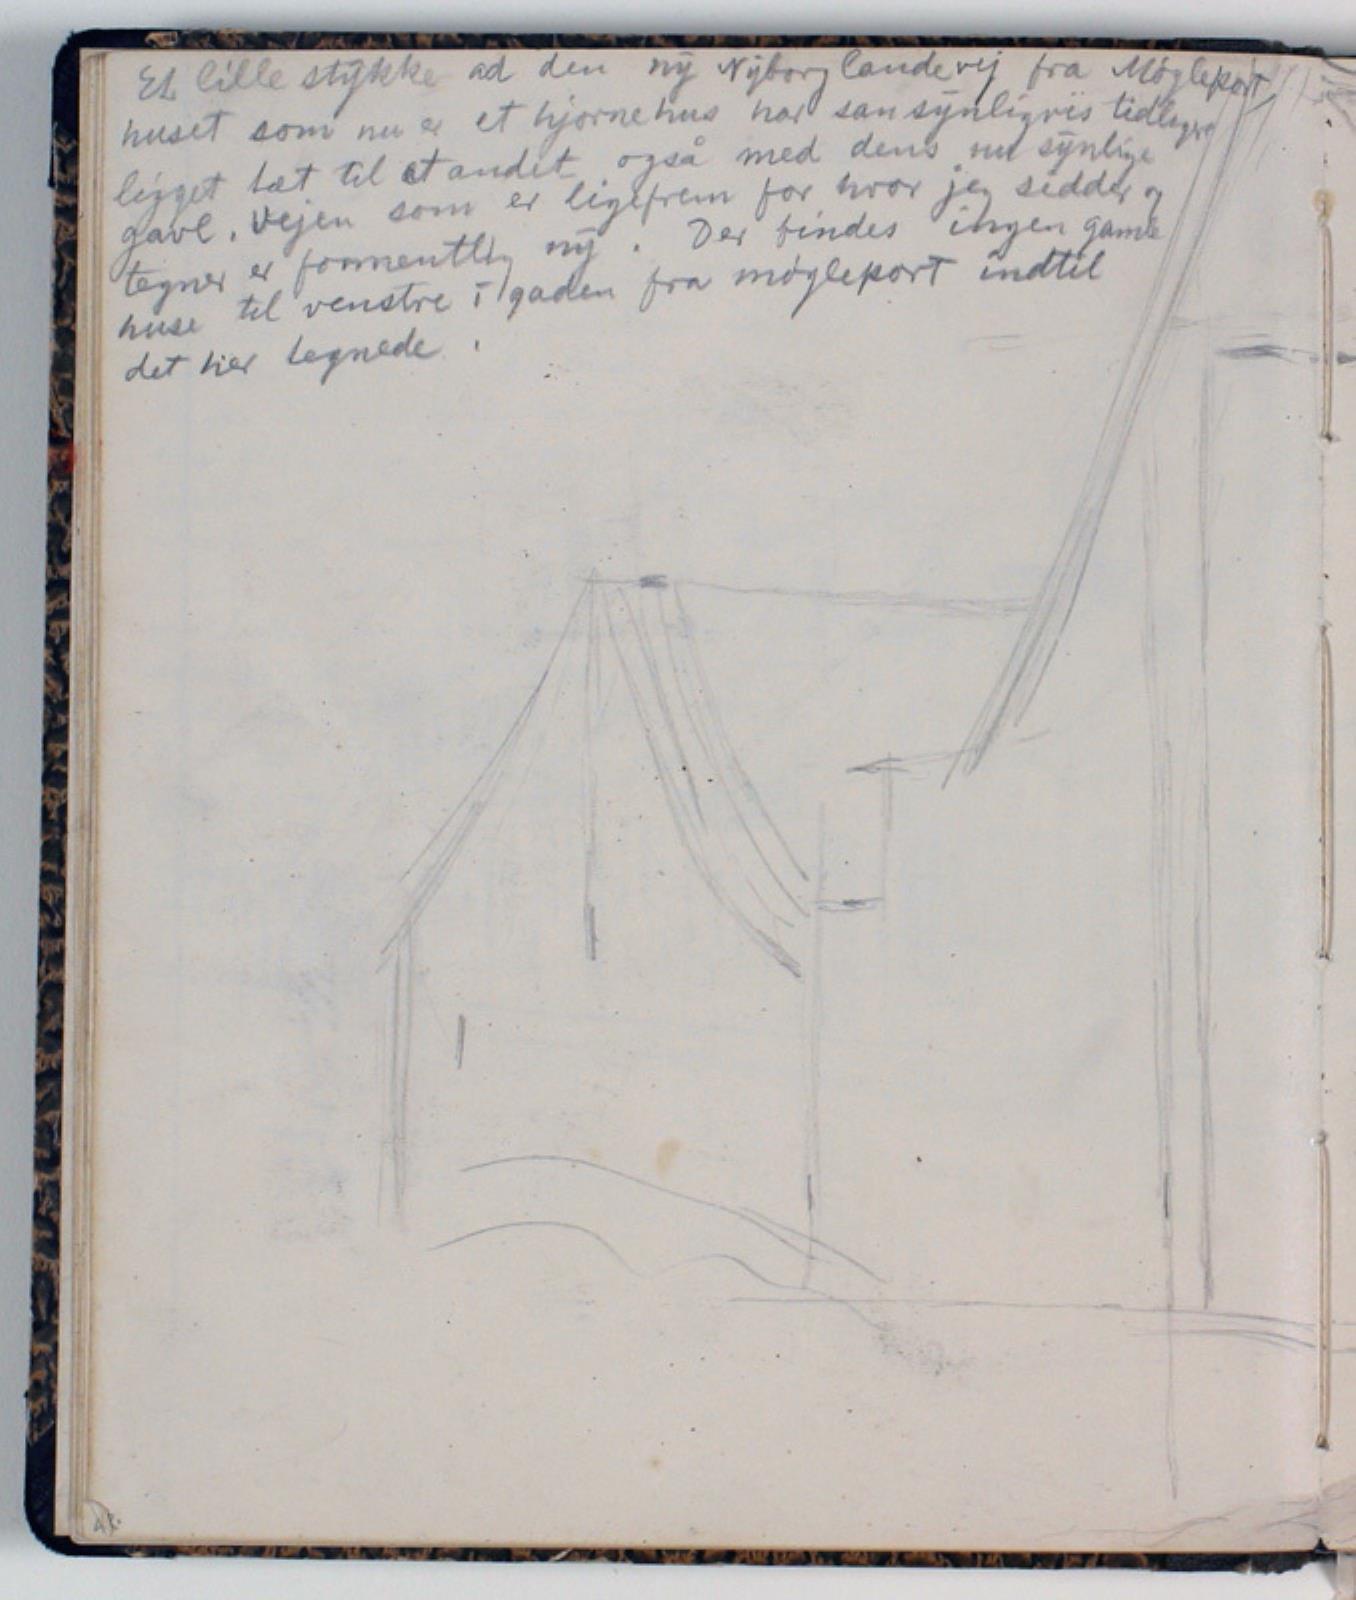 Et lille stykke ad den ny Nyborg landevej fra Møgleport
huset som nu er et hjørnehus har sansynligvis tidligere
ligget tæt til et andet også med dens nu synlige
gavl. Vejen som er ligefrem for hvor jeg sidder og
tegner er formentlig ny. Der findes ingen gamle
huse til venstre i gaden fra møgleport indtil
det her tegnede.